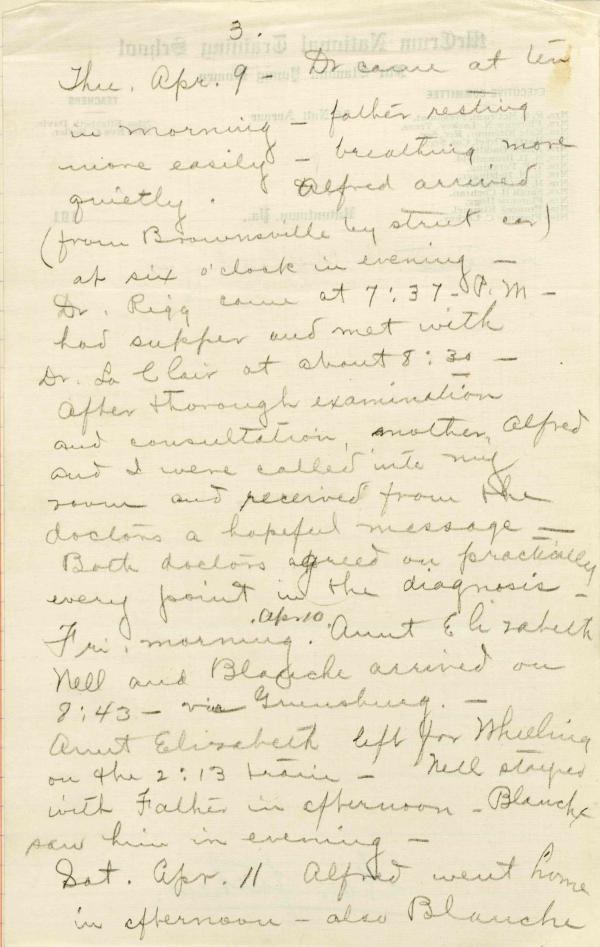 3.
Thu. Apr. 9 - Dr came at ten
in morning - father resting
more easily - breathing more
quietly. Alfred arrived
(from Brownsville by street car)
at six o'clock in evening -
Dr. Rigg came at 7:37 - P.M -
had supper and met with
Dr. La Clair at about 8:30 -
After thorough examination
and consultation, mother, Alfred
and I were called into my
room and received from the
doctors a hopeful message -
Both doctors agreed on practically
every point in the diagnosis -
Apr. 10.
Fri. morning. Aunt Elizabeth
Nell and Blanche arrived on
8:43 - via Greensburg. -
Aunt Elizabeth left for Wheeling
on the 2:13 train - Nell stayed
with Father in afternoon - Blanche
saw him in evening -
Sat. Apr. 11 Alfred went home
in afternoon - also Blanche
McCrum National Training School
For Slavonic Young Women
EXECUTIVE COMMITTEE
TEACHERS
Uniontown, Pa.,
191